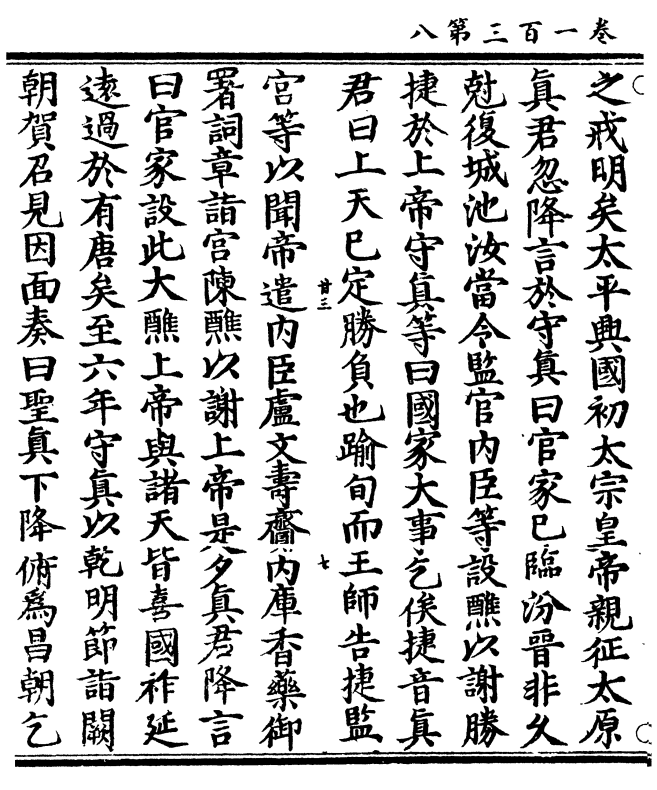 八第三百一卷
之戒明矣太平興國初太宗皇帝親征太原
眞君忽降言於守眞曰官家已臨汾晉非久
尅復城池汝當令監官内臣等設醮以謝勝
捷於上帝守眞等曰國家大事乞俟捷音眞
君曰上天已定勝負也踰旬而王師告捷監
甘三
七
宫等以聞帝遣内臣盧文壽齎内庫香藥御
署詞章詣宫陳醮以謝上帝是夕眞君降言
曰官家設此大醮上帝與諸天皆喜國祚延
遠過於有唐矣至六年守眞以乾明節詣闕
朝賀召見因面奏曰聖眞下降俯爲昌朝乞